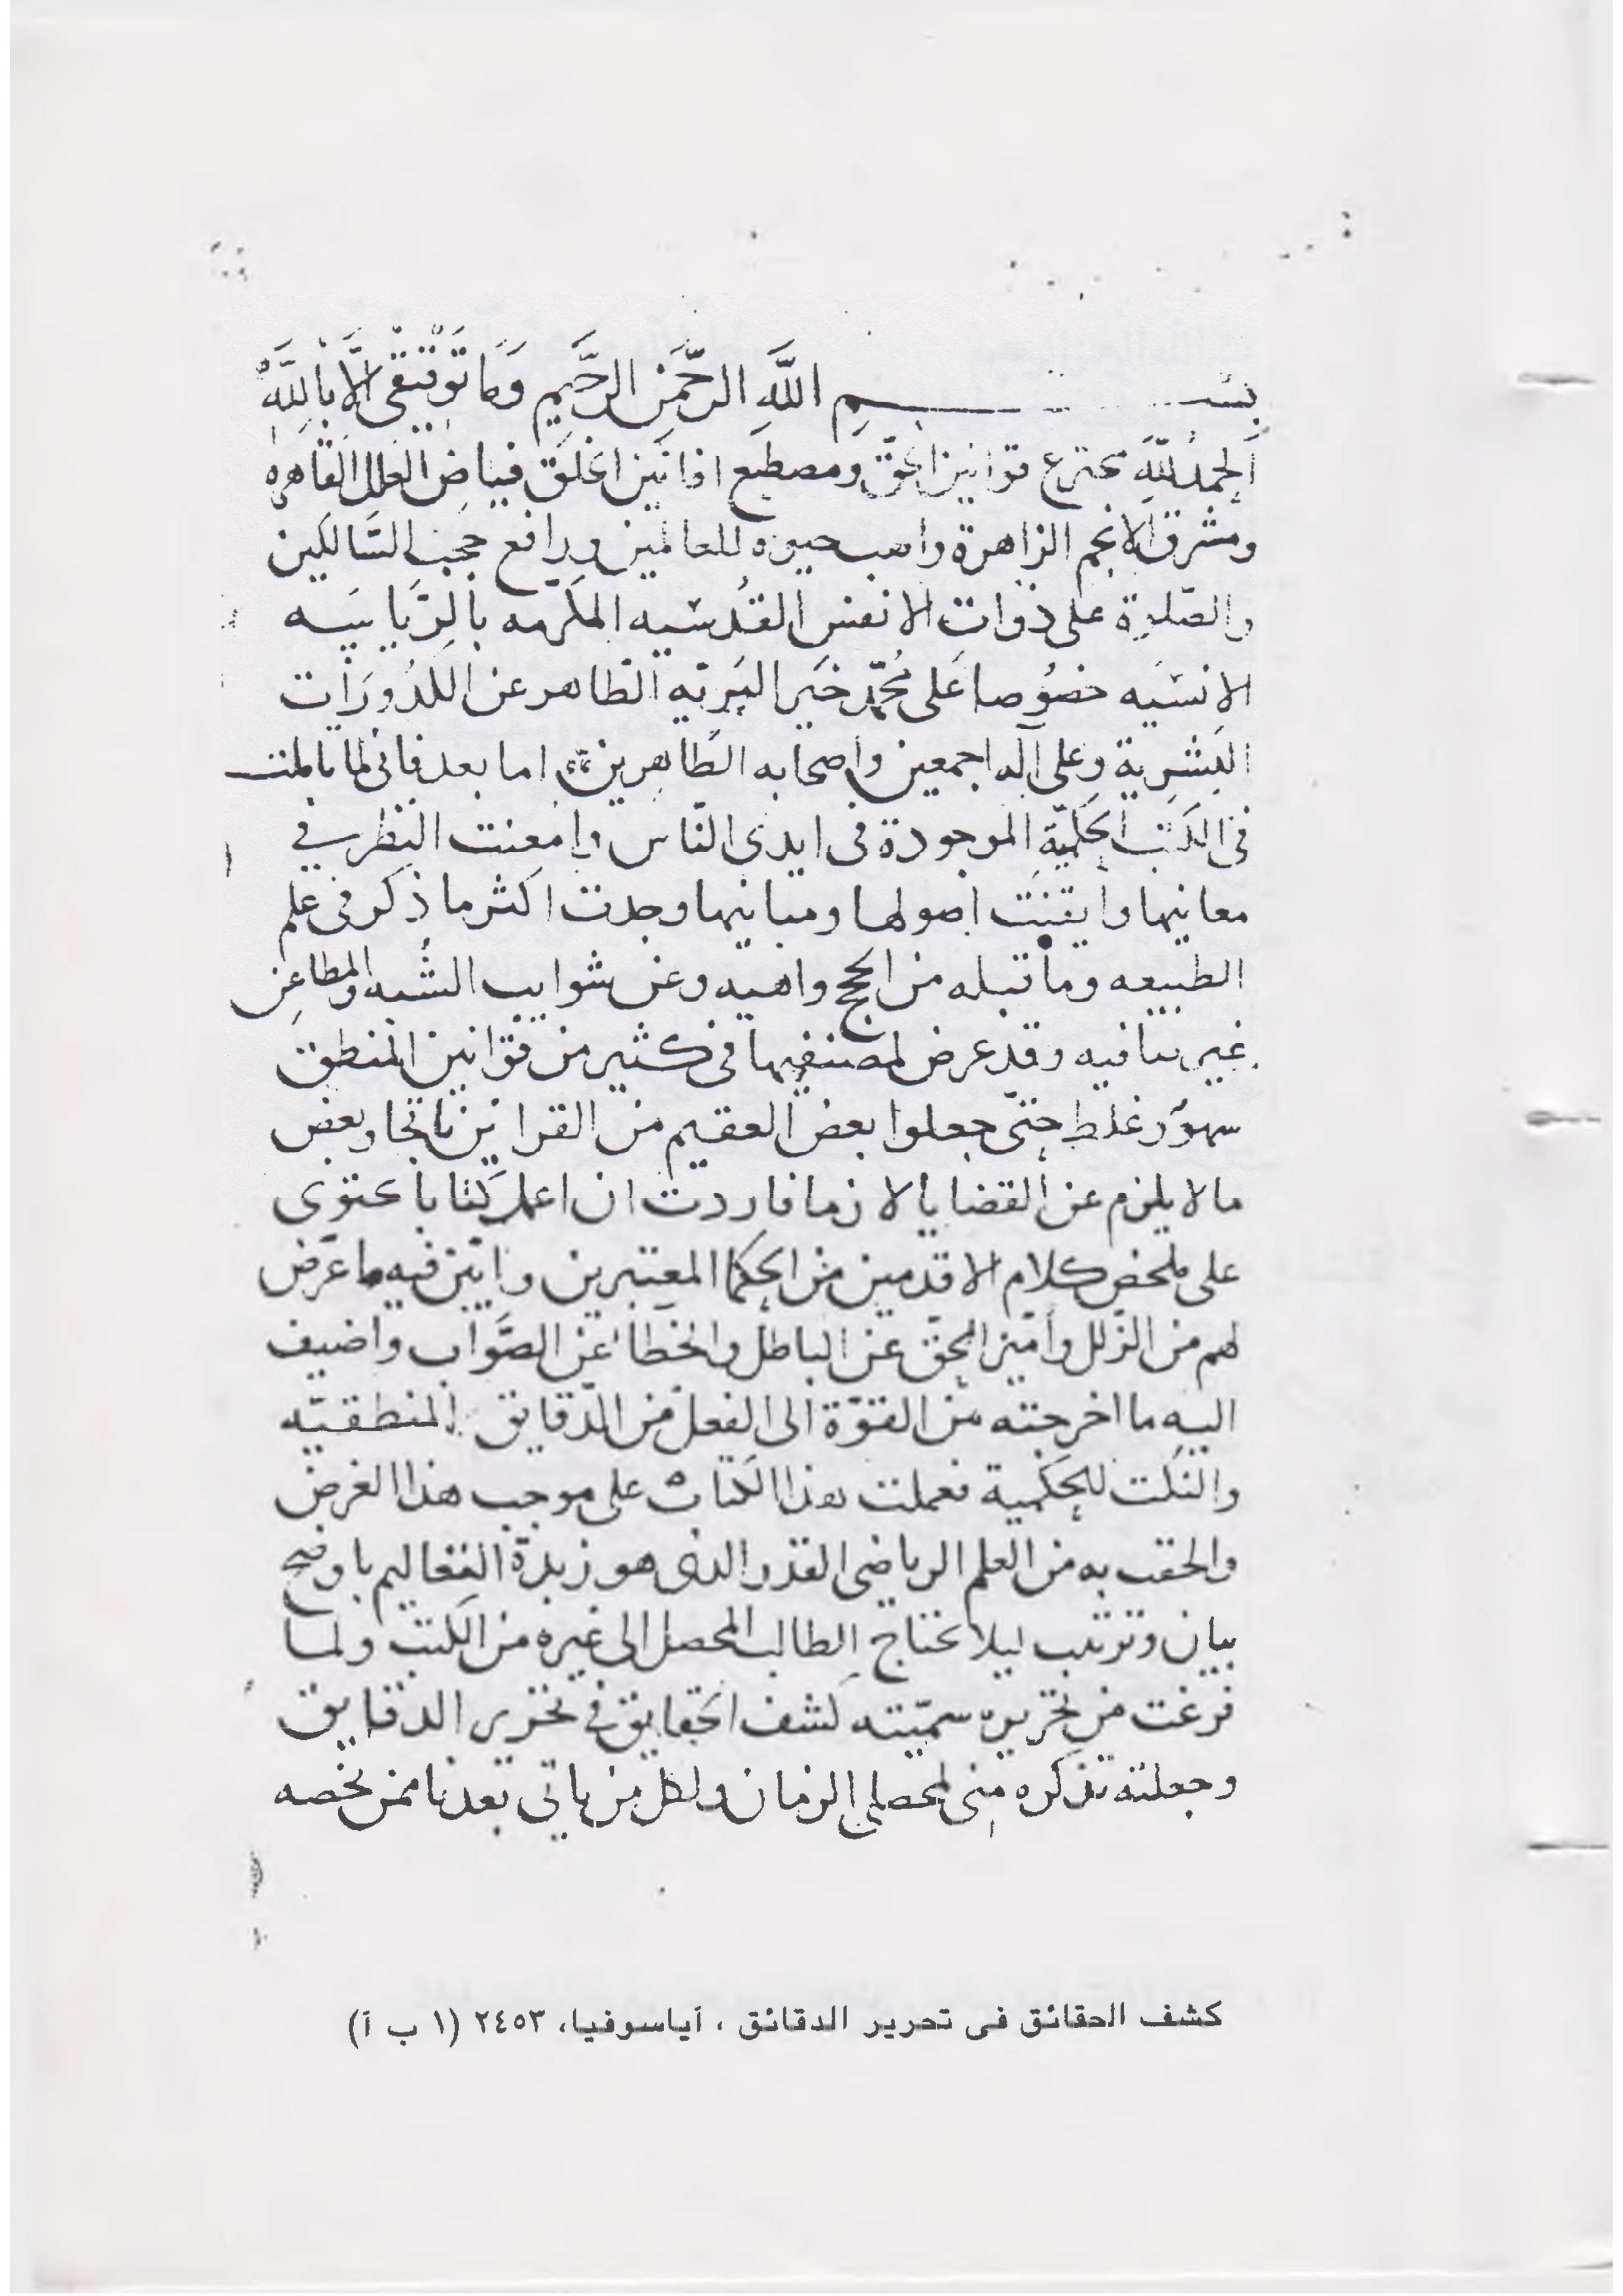 بسم الله الرحمن الرحيم وما توفيقى الا بالله
الحمد لله مخترع قوانين الحق ومصطبع افانين الخلق فياض العلل القاهره
ومشرق الانجم الزاهرة واهب حيوه للعالمين ورافع حجب السالكين
والصلوة على ذوات الانفس القدسيه المكرمه بالرياسه
الانسيه خصوصا على محمد خير البريه الطاهر عن الكدورات
البشرية وعلى آله اجمعين واصحابه الطاهرين اما بعد فانى لما تاملت
فى الكتب الحكمية الموجودة فى ايدى الناس وامعنت النظر في
معانيها وايقنت اصولها ومبانيها وجدت اكثر ما ذكر فى علم
الطبيعه وما قبله من الحجج واهيه وعن شوايب الشبه والمطاعن
غير نافيه وقد عرض لمصنفيها فى كثير من قوانين المنطق
سهو وغلط حتى جعلوا بعض العقيم من القراين ناتجا وبعض
ما لا يلزم عن القضايا لازما فاردت ان اعمل كتابا يحتوى
على ملخص كلام الاقدمين من الحكما المعتبرين وابين فيه ما عرض
لهم من الزلل واميز الحق عن الباطل والخطا عن الصواب واضيف
اليه ما اخرجته من القوة الى الفعل من الدقايق المنطقيه
والنكت الحكمية فعملت هذا الكتاب على موجب هذا الغرض
والحقت به من العلم الرياضى القدر الذى هو زبدة التعاليم باوضح
بيان وترتيب ليلا يحتاج الطالب المحصل الى غيره من الكتب ولما
فرغت من تحريره سميته كشف الحقايق في تحرير الدقايق
وجعلته تذكره منى لمحصلى الزمان ولكل من ياتى بعدنا ممن يخصه
كشف الحقائق فى تحرير الدقائق ، آياسوفيا، ٢٤٥٣ (١ ب آ)